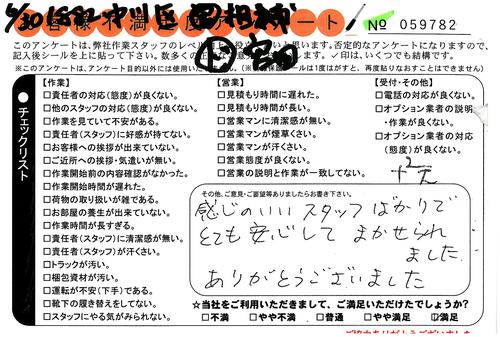 お客様不満足度アンケート
No 059782
このアンケートは、弊社作業スタッフのレベル
記入後シールを上に貼って下さい。
います。否定的なアンケートになりますので、
✓印は、いくつでも結構です。
※このアンケートは、アンケート目的以外には使用いた
シールは1度はがすと、再度貼りなおすことはできません)
●チェックリスト
【作業】
□責任者の対応(態度)が良くない。
□他のスタッフの対応(態度)が良くない。
□作業を見ていて不安がある。
□責任者(スタッフ)に好感が持てない。
□お客様への挨拶が出来ていない。
□ご近所への挨拶・気遣いが無い。
□作業開始前の内容確認がなかった。
□作業開始時間が遅れた。
□荷物の取り扱いが雑である。
□お部屋の養生が出来ていない。
□作業時間が長すぎる。
□責任者(スタッフ)に清潔感が無い。
□責任者(スタッフ)が汗くさい。
□トラックが汚い。
□梱包資材が汚い。
□運転が不安(下手)である。
□靴下の履き替えをしてない。
□スタッフにやる気がみられない。
【営業】
□見積もり時間に遅れた。
□見積もり時間が長い。
□営業マンに清潔感が無い。
□営業マンが煙草くさい。
□営業マンが汗くさい。
□営業態度が良くない。
□営業の説明と作業が一致してない。
【受付・その他】
□電話の対応が良くない。
□オプション業者の説明
・作業が良くない。
□オプション業者の対応
(態度)が良くない。
その他、ご意見・ご要望等ありましたらお書き下さい。
感じのいいスタッフばかりで
とても安心してまかせられ
ました
ありがとうございました
☆当社をご利用いただきまして、ご満足いただけたでしょうか?
□不満 □やや不満 □普通 □やや満足 ☑満足